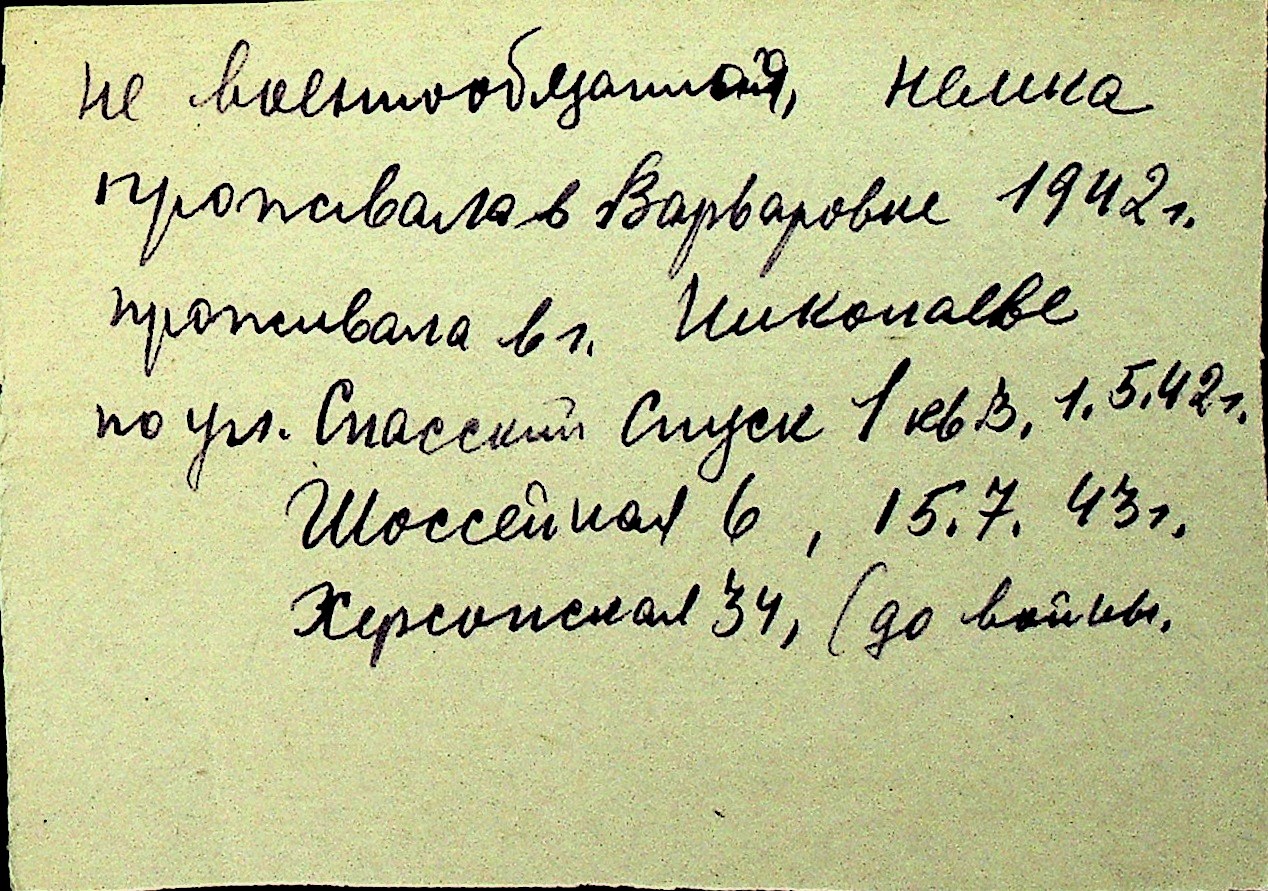 не военнообязанная, немка
проживала в Варваровке 1942 г.
проживала в г. Николаеве
по ул. Спасский Спуск 1 кв 3, 1.5.42 г.
Шоссейная 6, 15.7.43 г.
Херсонская 34, (до войны.